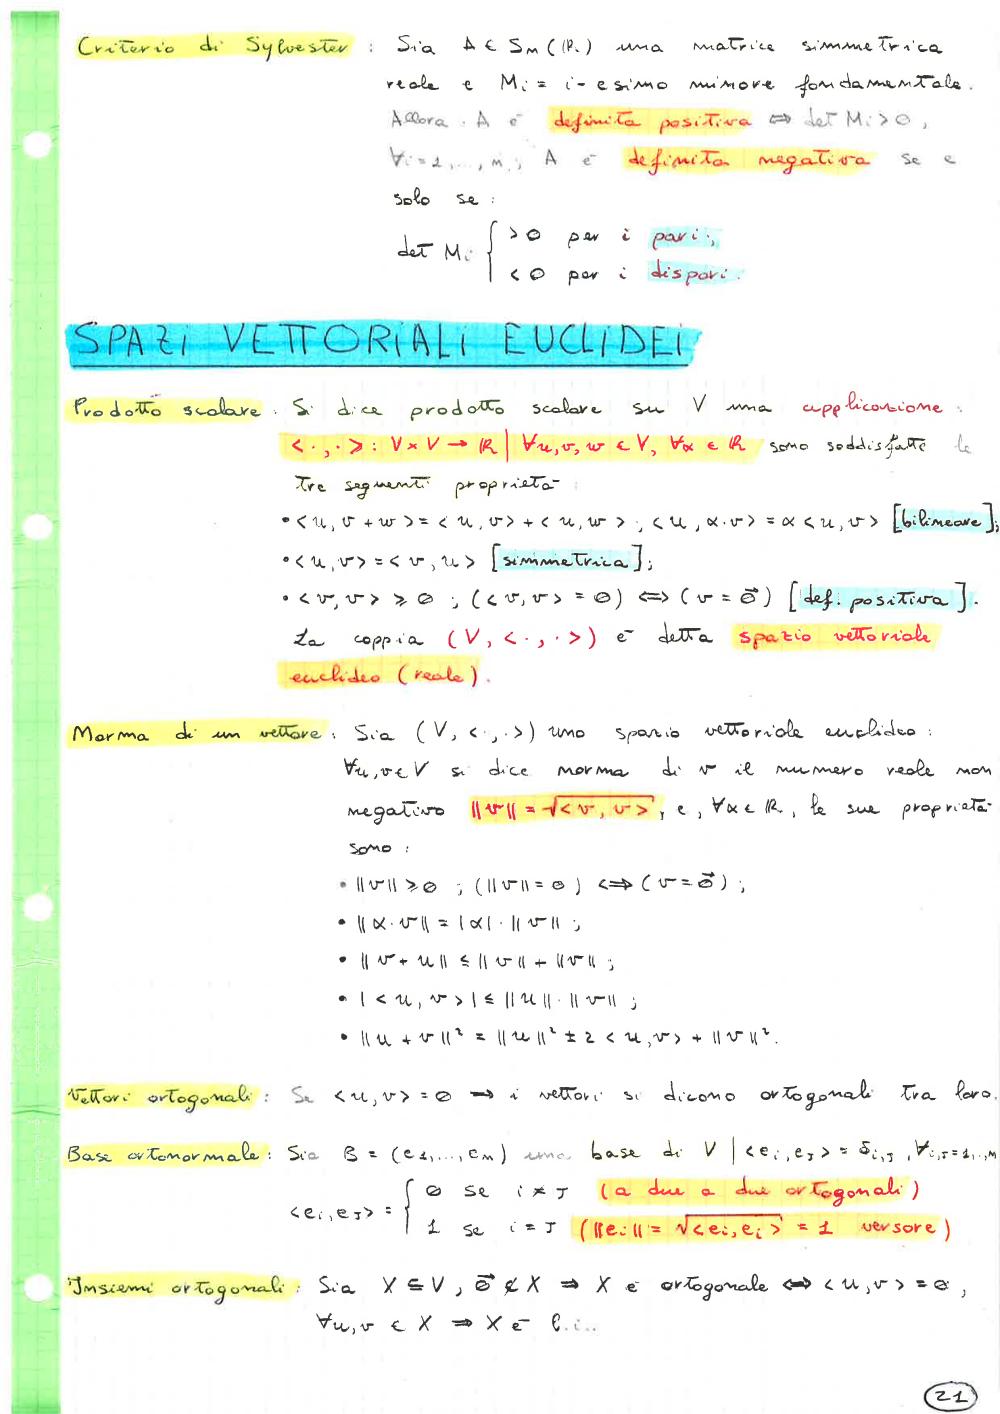 Criterio di Sylvester : Sia A ∈ Sn(R) una matrice simmetrica
reale e Mi = i-esimo minore fondamentale.
Allora: A è definita positiva ⇔ det Mi > 0,
∀i=1,...,n; A è definita negativa se e
solo se:
det Mi { > 0 per i pari;
< 0 per i dispari.
SPAZI VETTORIALI EUCLIDEI
Prodotto scalare: Si dice prodotto scalare su V una applicazione:
<·,·>: V×V → R | ∀u,v,w ∈ V, ∀α ∈ R sono soddisfatte le
tre seguenti proprietà:
• <u, v+w> = <u,v> + <u,w>; <u, α·v> = α<u,v> [bilineare];
• <u,v> = <v,u> [simmetrica];
• <v,v> ≥ 0 ; (<v,v> = 0) ⇔ (v = 0⃗) [def. positiva].
La coppia (V, <·,·>) è detta spazio vettoriale
euclideo (reale).
Norma di un vettore: Sia (V, <·,·>) uno spazio vettoriale euclideo:
∀u,v∈V si dice norma di v il numero reale non
negativo ||v|| = √<v,v>, e, ∀α∈R, le sue proprietà
sono:
• ||v|| ≥ 0 ; (||v|| = 0) ⇔ (v = 0⃗) ;
• ||α·v|| = |α|·||v|| ;
• ||v+u|| ≤ ||v|| + ||v|| ;
• |<u,v>| ≤ ||u||·||v|| ;
• ||u+v||² = ||u||² ± 2<u,v> + ||v||².
Vettori ortogonali: Se <u,v> = 0 → i vettori si dicono ortogonali tra loro.
Base ortonormale: Sia B = (e1,...,en) una base di V | <ei,eJ> = δi,J, ∀i,J=1,..,n
<ei,eJ> = { 0 se i ≠ J (a due a due ortogonali)
1 se i = J (||ei|| = √<ei,ei> = 1 versore)
Insiemi ortogonali: Sia X ⊆ V, 0⃗ ∉ X ⇒ X è ortogonale ⇔ <u,v> = 0,
∀u,v ∈ X ⇒ X è l.i..
21